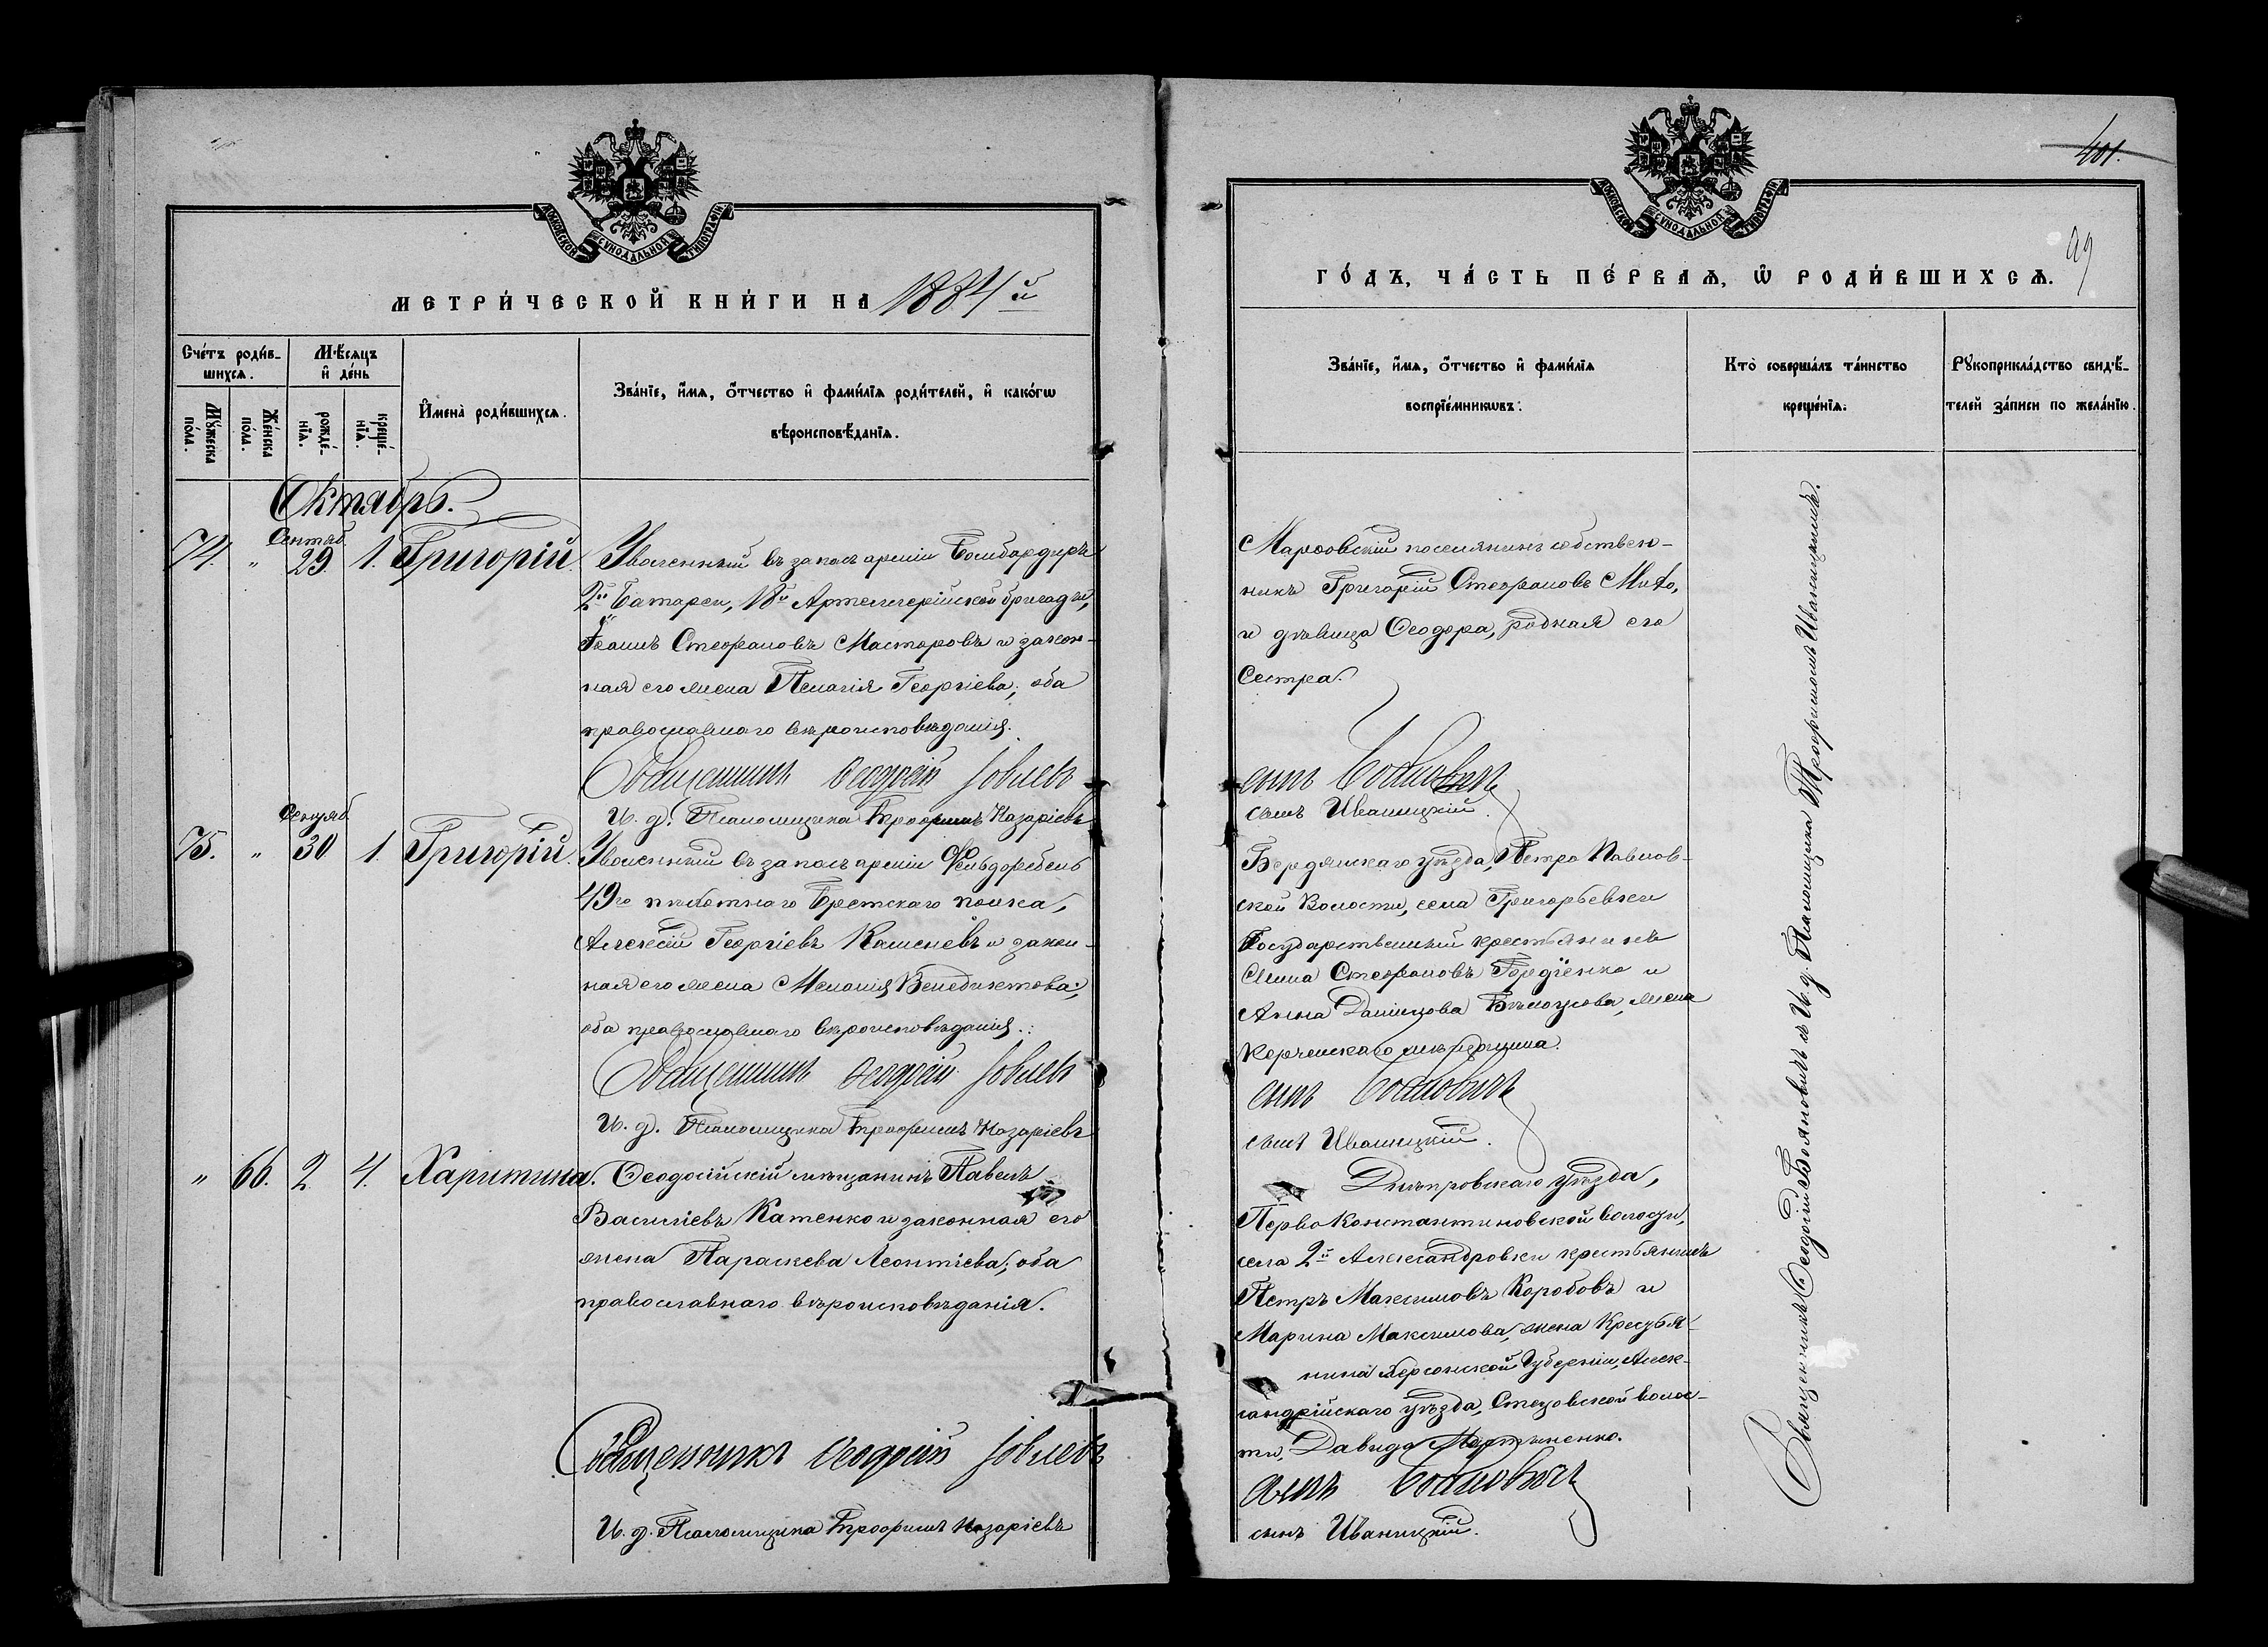 МОСКОВСКОЙ СУНОДАЛЬНОЙ ТИПОГРАФІИ
МЕТРИ́ЧЕСКОЙ КНИ́ГИ НА 1884й
Сче́тъ роди́в-
шихсѧ.
Мꙋ́жеска
по́ла.
Же́нска
по́ла.
Мѣ́сяцъ
и҆ де́нь
рожде́-
нїѧ.
креще́-
нїѧ.
И҆мена̀ роди́вшихсѧ.
Зва́нїе, и҆́мѧ, ѻ҆́тчество и҆ фами́лїѧ роди́телей, и҆ како́гѡ
вѣроисповѣ́данїѧ.
Октябрь.
74. " Сентяб. 29. 1. Григорій.
Уволенный въ запасъ арміи Бомбардиръ
2й Батареи, 13й Артиллерійской бригады,
Іоаннъ Стефановъ Мастеровъ и закон-
ная его жена Пелагія Георгіева; оба
православнаго вѣроисповѣданія.
Священникъ Ѳеодосій
И. д. Псаломщика Трофимъ Назаріевъ
75. " Сентяб. 30 1. Григорій.
Уволенный въ запасъ арміи Фельдфебель
49го пѣхотнаго Брестскаго полка,
Алексій Георгіевъ и закон-
ная его жена Меланія Венедиктова;
оба православнаго вѣроисповѣданія.
Священникъ Ѳеодосій
И. д. Псаломщика Трофимъ Назаріевъ
" 66. 2. 4. Харитина.
Ѳеодосійскій мѣщанинъ Павелъ
Василіевъ Катенко и законная его
жена Параскева Леонтіева; оба
православнаго вѣроисповѣданія.
Священникъ Ѳеодосій
И. д. Псаломщика Трофимъ Назаріевъ
401.
99
МОСКОВСКОЙ СУНОДАЛЬНОЙ ТИПОГРАФІИ
ГО́ДЪ, ЧА́СТЬ ПЕ́РВАѦ, Ѡ҆ РОДИ́ВШИХСѦ.
Зва́нїе, и҆́мѧ, ѻ҆́тчество и҆ фами́лїѧ
воспрїе́мникѡвъ:
Кто̀ соверша́лъ та́инство
креще́нїѧ:
Рꙋкоприкла́дство свидѣ́-
телей за́писи по жела́нїю.
Марфовскій поселянинъ собствен-
никъ Григорій Стефановъ
и дѣвица Ѳеодора, родная его
Сестра.
сынъ Бояновичъ
сынъ Иваницкій.
Бердянскаго уѣзда, Петро Павлов-
ской Волости, села Григорьевки
Государственный крестьянинъ
Стефановъ и
Анна Бѣлоусова, жена
Керченскаго мѣщанина.
сынъ Бояновичъ
сынъ Иваницкій.
Днѣпровскаго уѣзда,
Перво Константиновской волости,
села 2й Александровки крестьянинъ
Петръ Максимовъ Коробовъ и
Марина Максимова, жена Крестья-
нина Херсонской Губерніи, Алек-
сандрійскаго уѣзда, волос-
ти, Давида Мартыненко.
сынъ Бояновичъ
сынъ Иваницкій.
Священникъ Ѳеодосій Бояновичъ и И. д. Псаломщика Трофимомъ Иваницкимъ.